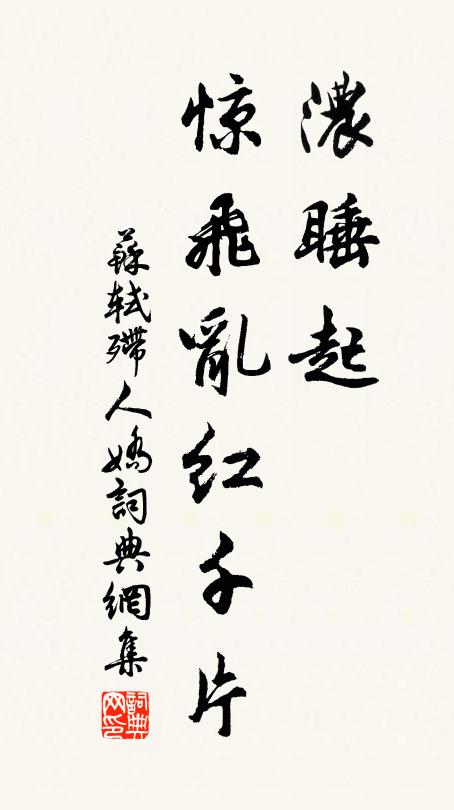 濃睡起
惊飛亂紅千片
蘇軾殢人嬌詞典網集
詞典网印